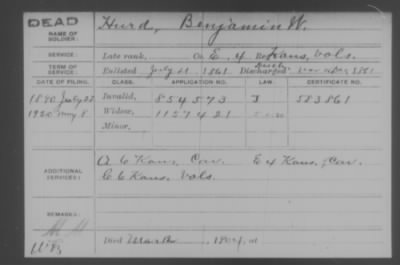 DEAD
NAME OF SOLDIER:
Hurd, Benjamin W.
SERVICE:
Late rank, Co. E, 4 Reg. Kans. Vols.
TERM OF SERVICE:
Enlisted July 11 1861 Discharged 1861
DATE OF FILING. CLASS. APPLICATION NO. LAW. CERTIFICATE NO.
1890 July 22 Invalid, 854573 J 583861
1920 May 8 Widow, 1157421
Minor,
ADDITIONAL SERVICES:
A 6 Kans. Cav. E 4 Kans. Cav.
C 6 Kans. Vols.
REMARKS:
Died March 1904, at